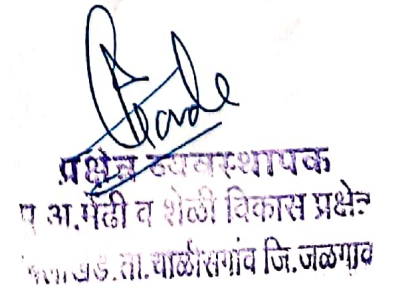 प्रक्षेत्र व्यवस्थापक
पु अ.मेंढी व शेळी विकास प्रक्षेत्र
ता.चाळीसगांव जि.जळगाव